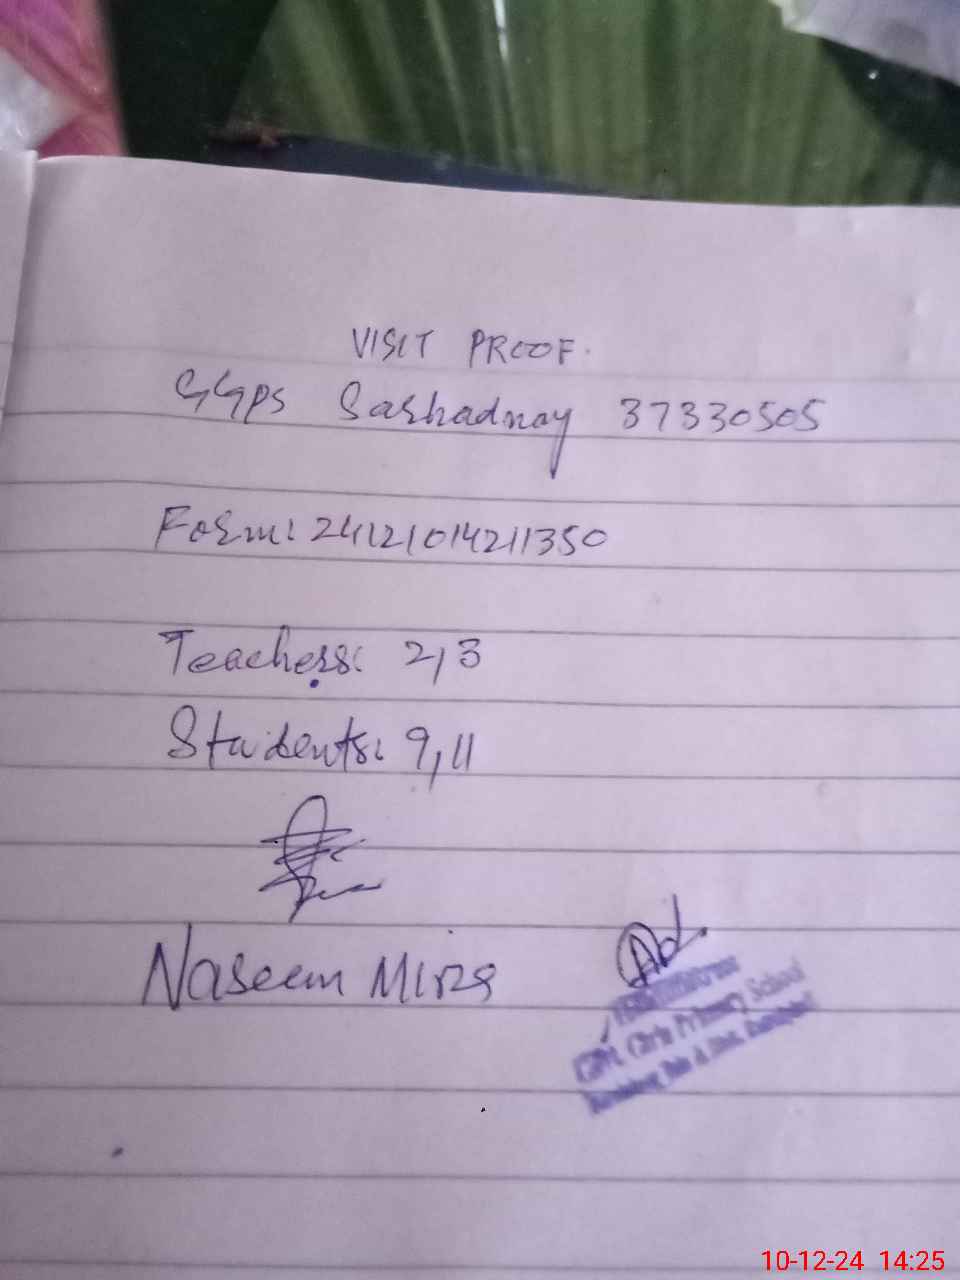 VISIT PROOF.
GGPS Sarhadnay 37330505
Form: 24121014211350
Teachers: 2,3
Students: 9,11
Naseem Mirza
Govt. Girls Primary School
10-12-24 14:25